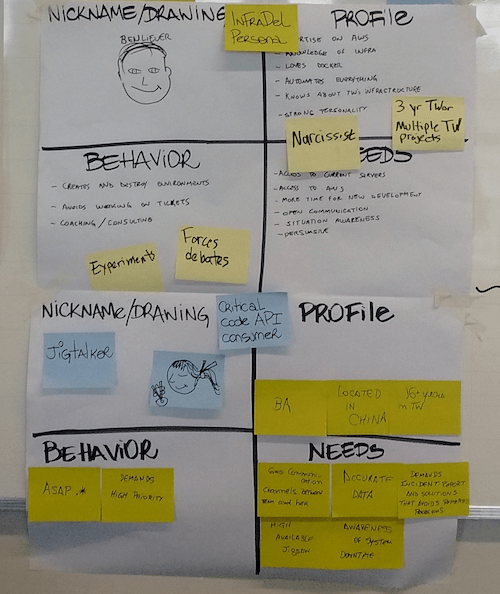 NICKNAME/DRAWING
INFRADEL
Persona
PROFILE
BENLIEVER
EXPERTISE ON AWS
KNOWLEDGE OF INFRA
- LOVES DOCKER
- AUTOMATES EVERYTHING
- KNOWS ABOUT TW'S INFRASTRUCTURE
- STRONG PERSONALITY
3 yr TWer
Multiple TW
projects
Narcissist
BEHAVIOR
- CREATES AND DESTROY ENVIRONMENTS
- AVOIDS WORKING ON TICKETS
- COACHING / CONSULTING
Experiments
Forces
debates
NEEDS
- ACCESS TO CURRENT SERVERS
- ACCESS TO AWS
- MORE TIME FOR NEW DEVELOPMENT
- OPEN COMMUNICATION
- SITUATION AWARENESS
- PERSUASIVE
NICKNAME/DRAWING
Critical
code API
consumer
PROFILE
JiGtalker
BA
LOCATED
IN
CHINA
in TW
BEHAVIOR
ASAP.*
DEMANDS
HIGH PRIORITY
NEEDS
Channels between
ACCURATE
DATA
DEMANDS
INCIDENT REPORT
AND SOLUTIONS
THAT AVOIDS
PROBLEMS
HIGH
AVAILABLE
AWARENESS
OF SYSTEM
DOWNTIME